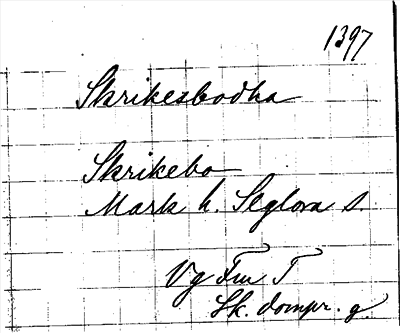 1397
Skrikesbodha
Skrikebo
Mark h. Seglora s.
Vg Fru T
Sk. dompr. g.